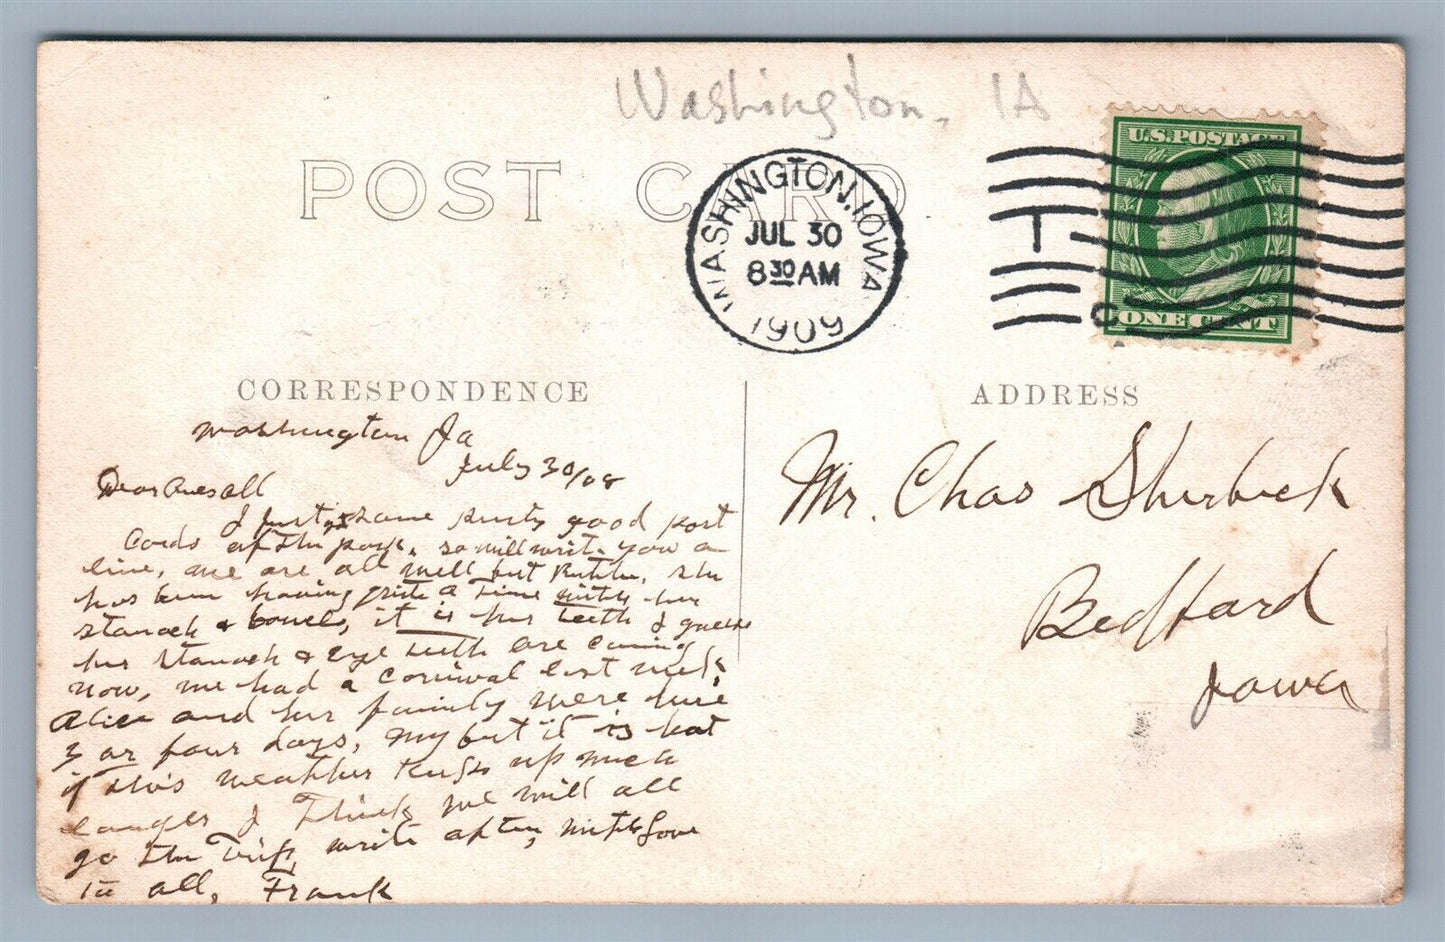 Washington, IA
U.S. POSTAGE
ONE CENT
POST CARD
WASHINGTON, IOWA
JUL 30
8 30 AM
1909
CORRESPONDENCE
ADDRESS
Washington Ia
July 30/08
Dear
I just some good post
Cards of the park, so will write you a
line, are all well but she
has been having quite a time with her
stomach & bowels, it is her teeth I guess
her stomach & eye teeth are coming
now, we had a Cornival last week,
Alice and her family were here
3 or four days, my but it is hot
if this weather Keeps up much
longer I Think we will all
go The write often, with Love
to all, Frank
Mr. Chas Shirbeck
Bedford
Iowa